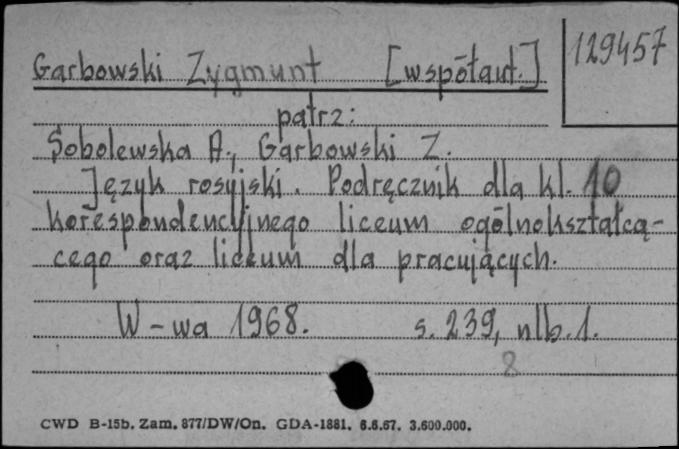 Garbowski Zygmunt [współaut.] 129457
patrz:
Sobolewska A., Garbowski Z.
Język rosyjski. Podręcznik dla kl. 10
korespondencyjnego liceum ogólnokształcą-
cego oraz liceum dla pracujących.
W-wa 1968. s. 239, nlb. 1.
8
CWD B-15b. Zam. 877/DW/On. GDA-1881. 6.6.67. 3.600.000.